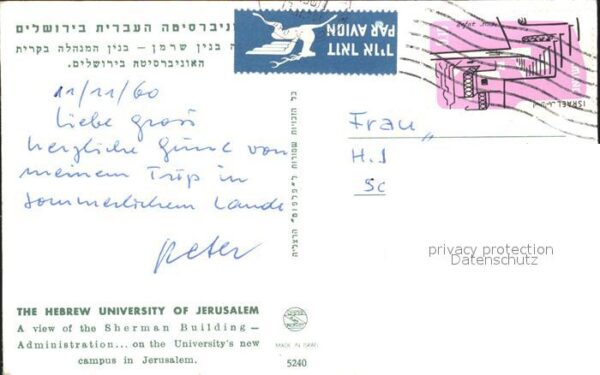 האוניברסיטה העברית בירושלים
בנין שרמן — בנין המנהלה בקרית
האוניברסיטה בירושלים.
דואר אויר
PAR AVION
ISRAEL
11/11/60
Liebe
herzliche von
meinem Trip in
sommerlichem Lande
Peter
Frau
H. S
Sc
כל הזכויות שמורות
privacy protection
Datenschutz
THE HEBREW UNIVERSITY OF JERUSALEM
A view of the Sherman Building —
Administration... on the University's new
campus in Jerusalem.
MADE IN ISRAEL
5240